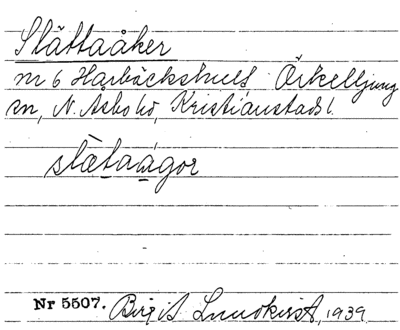 Slåttaåker
nr 6 Harbäckshult Örkelljung
sn, N. Åsbo hd, Kristianstads l.
slàtaágor
Nr 5507. Birgit Lundkvist, 1939